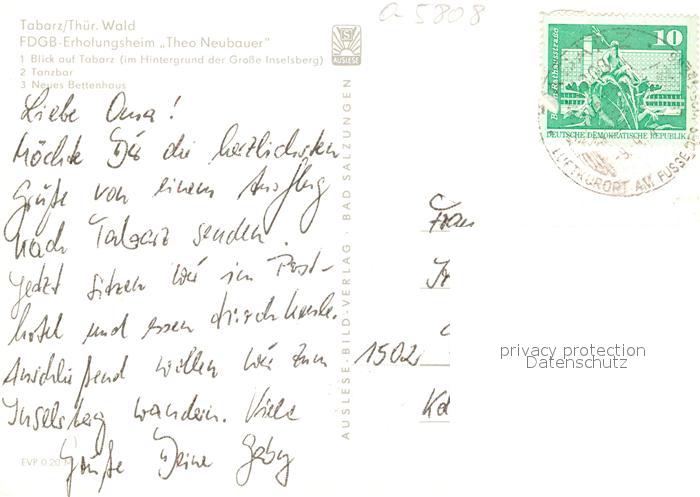 a 5808
Tabarz/Thür. Wald
FDGB-Erholungsheim „Theo Neubauer"
1 Blick auf Tabarz (im Hintergrund der Große Inselsberg)
2 Tanzbar
3 Neues Bettenhaus
AUSLESE
10
Berlin, Rathausstraße
DEUTSCHE DEMOKRATISCHE REPUBLIK
LUFTKURORT AM FUSSE DES
Liebe Oma!
Möchte Dir die herzlichsten
Grüße von einem Ausflug
nach Tabarz senden.
Jetzt sitzen wir im Post-
hotel und essen
Anschließend wollen wir zum
Inselsberg wandern. Viele
Grüße Deine Gaby
EVP 0.20 M
AUSLESE-BILD-VERLAG · BAD SALZUNGEN
Frau
1502
privacy protection
Datenschutz